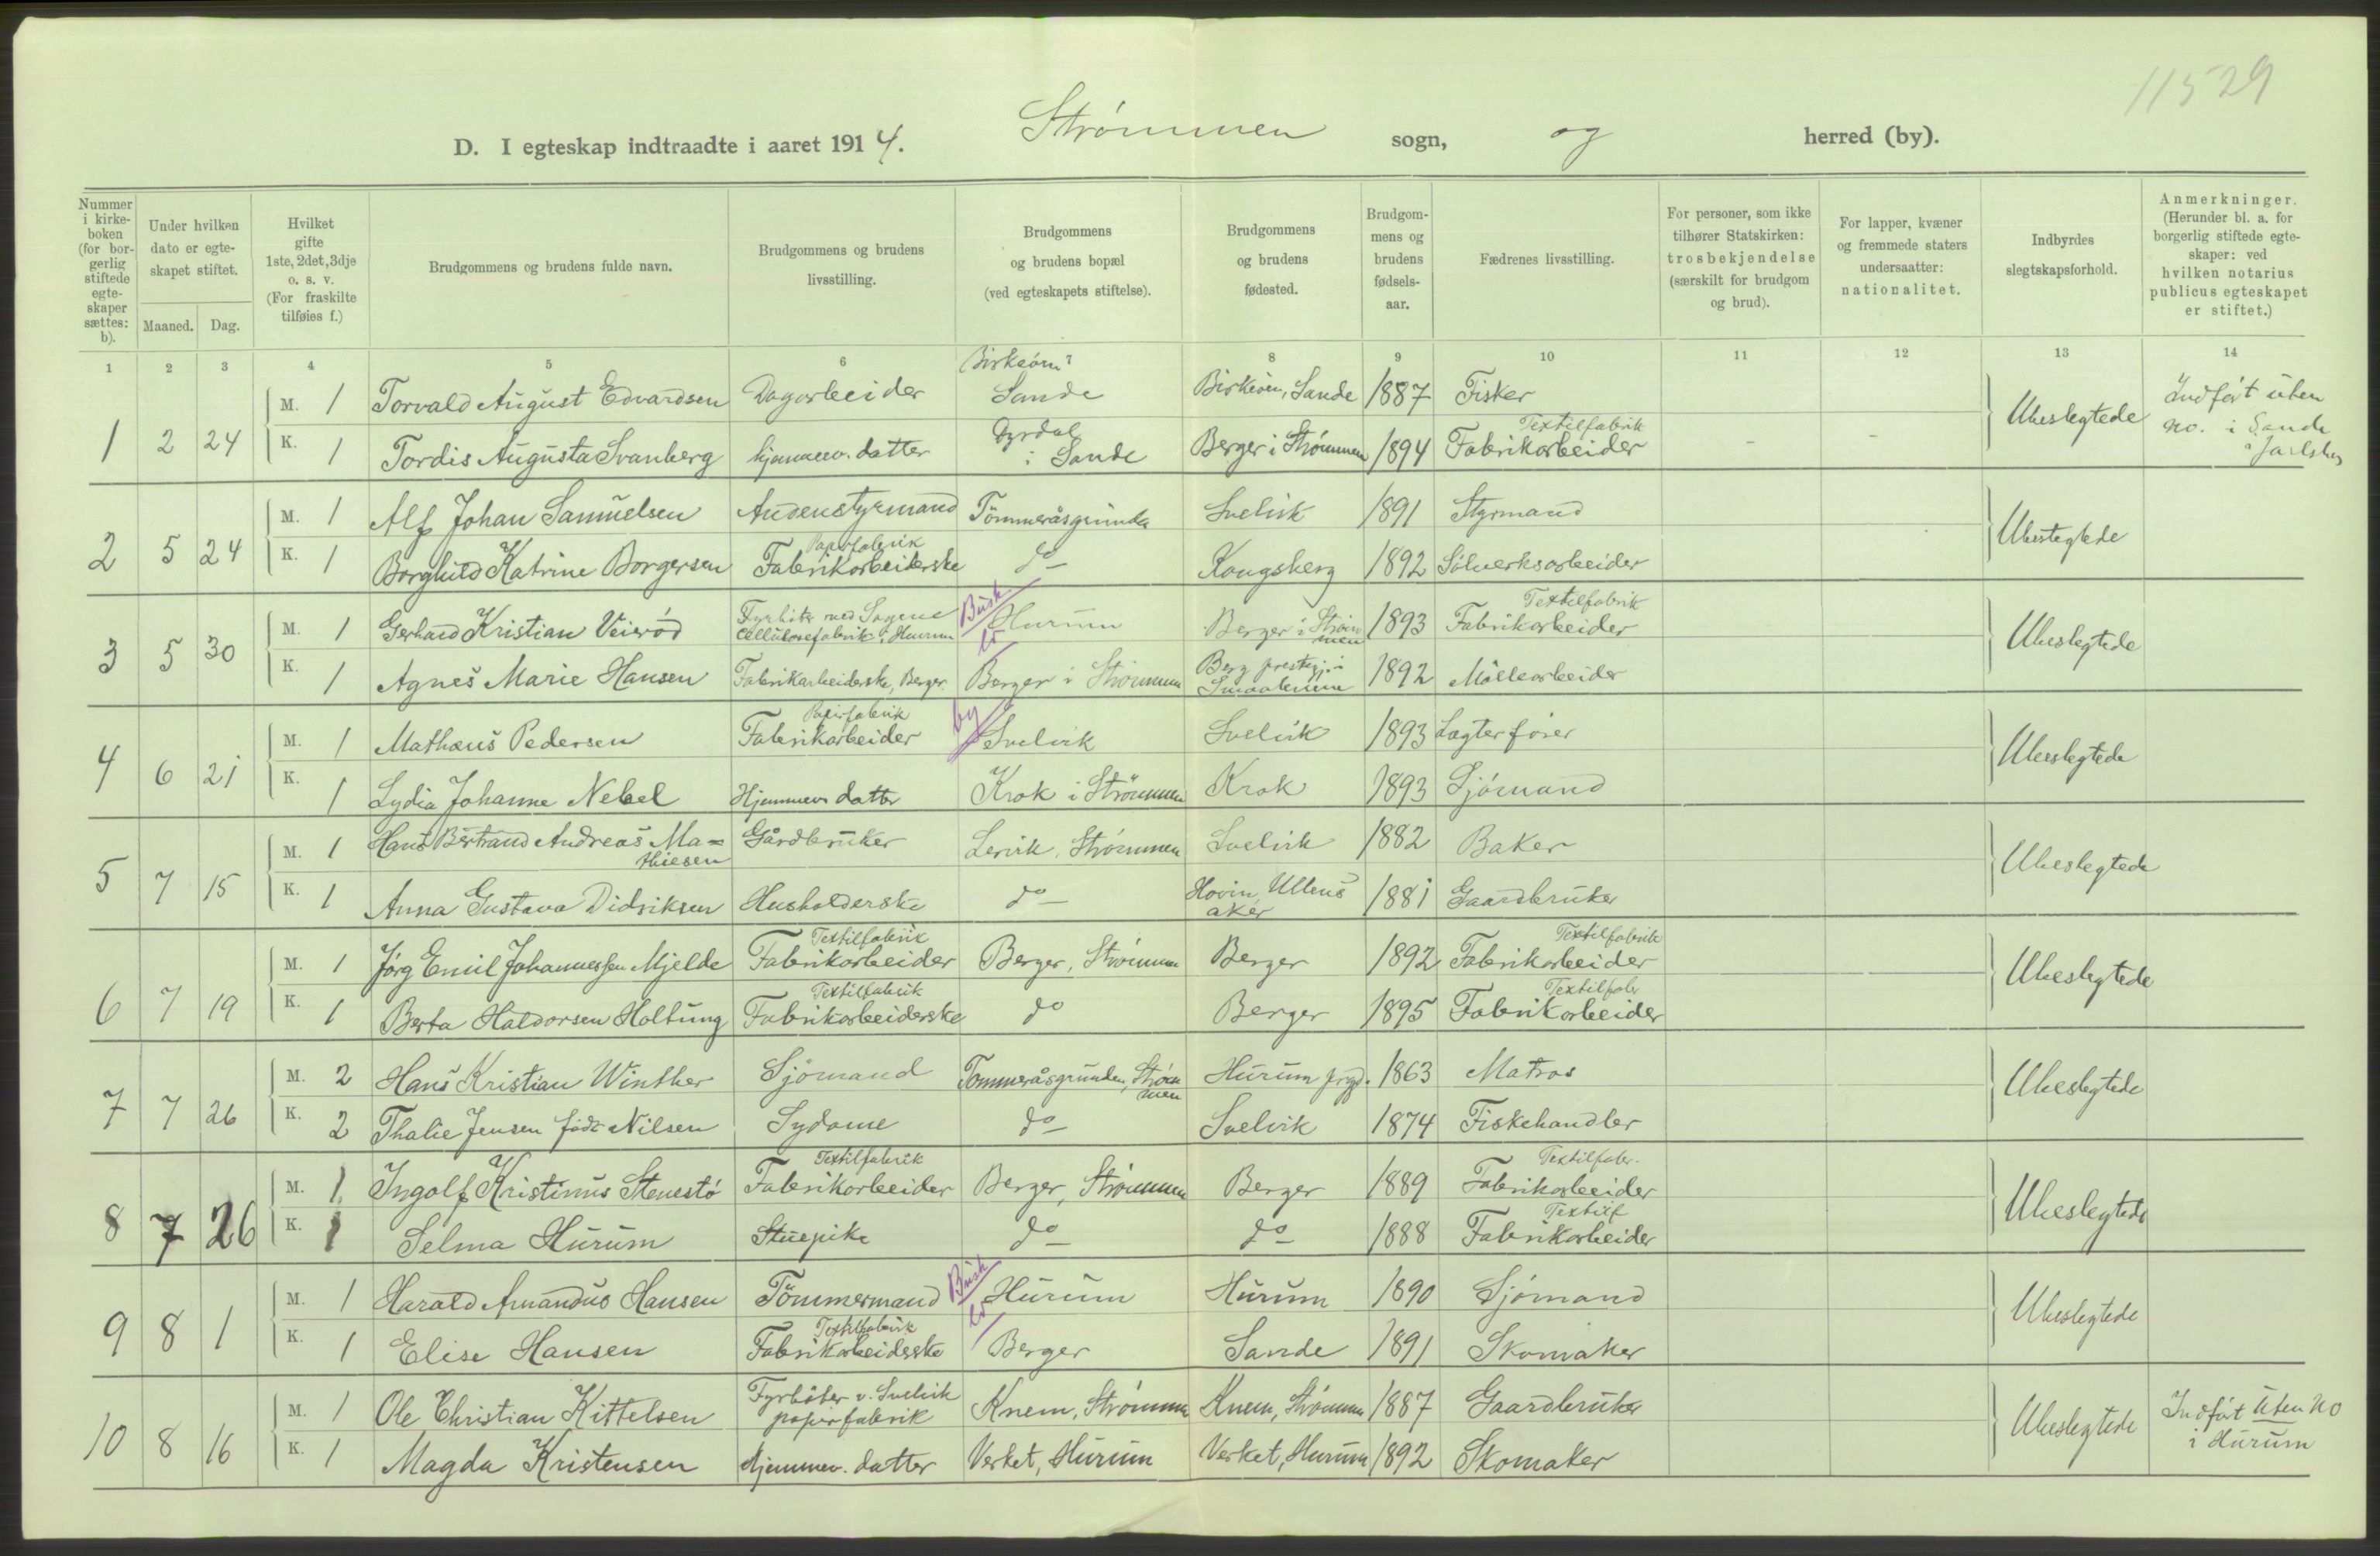 11529
D. I egteskap indtraadte i aaret 1914. Strømmen sogn, og herred (by).
Nummer i kirkeboken (for borgerlig stiftede egteskaper sættes: b).
Under hvilken dato er egteskapet stiftet.
Maaned. Dag.
Hvilket gifte 1ste, 2det, 3dje o. s. v. (For fraskilte tilføies f.)
Brudgommens og brudens fulde navn.
Brudgommens og brudens livsstilling.
Brudgommens og brudens bopæl (ved egteskapets stiftelse).
Brudgommens og brudens fødested.
Brudgommens og brudens fødselsaar.
Fædrenes livsstilling.
For personer, som ikke tilhører Statskirken: trosbekjendelse (særskilt for brudgom og brud).
For lapper, kvæner og fremmede staters undersaatter: nationalitet.
Indbyrdes slegtskapsforhold.
Anmerkninger. (Herunder bl. a. for borgerlig stiftede egteskaper: ved hvilken notarius publicus egteskapet er stiftet.)
1 2 3 4 5 6 8 9 10 11 12 13 14
1 2 24 M. 1 Torvald August Edvardsen Dagarbeider Sande Sande 1887 Fisker Ubeslegtede Indført uten no. i Sande
K. 1 Tordis Augusta Svanberg hjemmev. datter Dyrdal i Sande Berger i Strømmen 1894 Textilfabrik Fabrikarbeider - -
2 5 24 M. 1 Alf Johan Samuelsen Andenstyrmand Tömmeråsgrunden Svelvik 1891 Styrmand Ubeslegtede
K. 1 Borghild Katrine Borgersen Papirfabrik Fabrikarbeiderske do Kongsberg 1892 Sölverksarbeider
3 5 30 M. 1 Gerhard Kristian Veierød Fyrböter ved Sagene Cellulosefabrik i Hurum Busk Hurum Berger i Strømmen 1893 Textilfabrik Fabrikarbeider Ubeslegtede
K. 1 Agnes Marie Hansen Fabrikarbeiderske, Berger Berger i Strömmen Berg prestegj. i Smaalenene 1892 Möllearbeider
4 6 21 M. 1 Mathæus Pedersen Papirfabrik Fabrikarbeider by Svelvik Svelvik 1893 Lægterfører Ubeslegtede
K. 1 Lydia Johanne Nebel Hjemmev datter Krok i Strömmen Krok 1893 Sjómand
5 7 15 M. 1 Hans Bertrand Andreas Mathiesen Gårdbruker Lervik, Strømmen Svelvik 1882 Baker Ubeslegtede
K. 1 Anna Gustava Didriksen Husholderske do Hovin, Ullensaker 1881 Gaardbruker
6 7 19 M. 1 Jörg Emil Johannessen Mjelde Textilfabrik Fabrikarbeider Berger, Strømmen Berger 1892 Textilfabrik Fabrikarbeider Ubeslegtede
K. 1 Berta Haldorsen Holtung Textilfabrik Fabrikarbeiderske do Berger 1895 Textilfabr Fabrikarbeider
7 7 26 M. 2 Hans Kristian Winther Sjömand Tommeråsgrunden, Strømmen Hurum prgd. 1863 Matros Ubeslegtede
K. 2 Thalie Jensen födt Nilsen Sydame do Svelvik 1874 Fiskehandler
8 7 26 M. 1 Ingolf Kristinus Stenestö Textilfabrik Fabrikarbeider Berger, Strömmen Berger 1889 Textilfabr. Fabrikarbeider Ubeslegtede
K. 1 Selma Hurum Stuepike do do 1888 Textilf Fabrikarbeider
9 8 1 M. 1 Harald Amandus Hansen Tömmermand Busk Hurum Hurum 1890 Sjömand Ubeslegtede
K. 1 Elise Hansen Textilfabrik Fabrikarbeiderske Berger Sande 1891 Skomaker
10 8 16 M. 1 Ole Christian Kittelsen Fyrböter v. Svelvik papirfabrik Knem, Strömmen Knem, Strömmen 1887 Gaardbruker Ubeslegtede Indfört uten no i Hurum
K. 1 Magda Kristensen Hjemmev. datter Verket, Hurum Verket, Hurum 1892 Skomaker